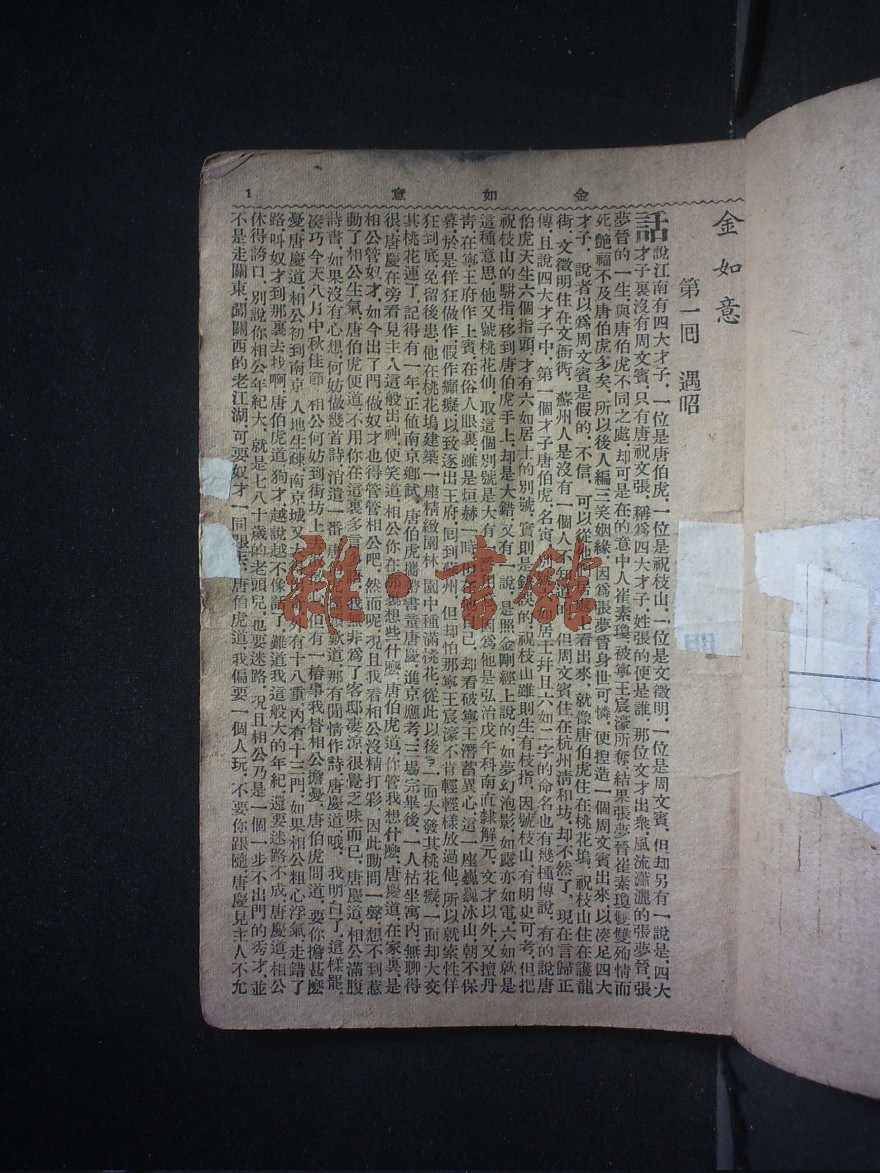 金如意
1
金如意
第一回　遇昭
話說江南有四大才子，一位是唐伯虎，一位是祝枝山，一位是文徵明，一位是周文賓，但却另有一說是，四大
才子裏沒有周文賓，只有唐祝文張，稱爲四大才子，姓張的便是誰，那位文才出衆，風流瀟灑的張夢晉，張
夢晉的一生，與唐伯虎不同之處，却可是在的意中人崔素瓊，被寧王宸濠所奪，結果張夢晉崔素瓊雙雙殉情而
死，艶福不及唐伯虎多矣，所以後人編三笑姻緣，因爲張夢晉身世可憐，便揑造一個周文賓出來，以湊足四大
才子，說者以爲周文賓是假的，不信，可以從他居上看出來，就像唐伯虎住在桃花塢，祝枝山住在護龍
街，文徵明住在文衙衖，蘇州人是沒有一個人不知道的，但周文賓住在杭州淸和坊，却不然了，現在言歸正
傳，且說四大才子中，第一個才子唐伯虎，名寅，如居士幷且六如二字的命名也有幾種傳說，有的說唐
伯虎天生六個指頭，才有六如居士的別號，實則是錯誤的，祝枝山雖則生有枝指，因號枝山，有明史可考，但把
祝枝山的駢指，移到唐伯虎手上，却是大錯，又有一說，是照金剛經上說的，如夢幻泡影，如露亦如電，六如就是
這種意思，他又號桃花仙，取這個別號是大有用因爲他是弘治戊午科南直隸解元，文才以外，又擅丹
靑，在寧王府作上賓，在俗人眼裏雖是烜赫一時，他己，却看破寧王潛蓄異心，這一座巍巍冰山，朝不保
暮，於是佯狂做作，假作癲癡以致逐出王府，回到州，但却怕那寧王宸濠不肯輕輕樣放過他，所以就索性佯
狂到底，免留後患，他在桃花塢建築一座精緻園林，園中種滿桃花，從此以後，一面大發其桃花癡，一面却大交
其桃花運了，記得有一年，正値南京鄉試，唐伯虎攜書童唐慶，進京應考，三塲完畢後，一人枯坐寓內，無聊得
很，唐慶在旁看見主人這般出神，便笑道，相公你在那裏想些什麽，唐伯虎道，你管我想什麽，唐慶道，在家裏是
相公管奴才，如今出了門，做奴才也得管管相公吧，然而呢，况且我看相公沒精打彩，因此動問一聲，想不到惹
動了相公生氣，唐伯虎便道，不用你在這裏多言多，我非爲了客邸凄凉，很覺乏味而已，唐慶道，相公滿腹
詩書，如果沒有心想，何妨做幾首詩，消遣一番，唐歎道，那有閒情作詩，唐慶道，哦，我明白了，這樣罷，
凑巧今天八月中秋佳節，相公何妨到街坊上走但有一樁事我替相公擔憂，唐伯虎聞道，要你擔甚麽
憂，唐慶道，相公初到南京，人地生疎，南京城又大外有十八重，內有十三門，如果相公粗心浮氣，走錯了
路，叫奴才到那裏去找啊，唐伯虎道，狗才，越說越不像話了，難道我這般大的年紀，還要迷路不成，唐慶道，相公
休得誇口，別說你相公年紀大，就是七八十歲的老頭兒，也要迷路，况且相公乃是一個一步不出門的秀才，並
不是走關東，闖關西的老江湖，可要奴才一同跟去，唐伯虎道，我偏要一個人玩，不要你跟隨，唐慶見主人不允
雜·書館